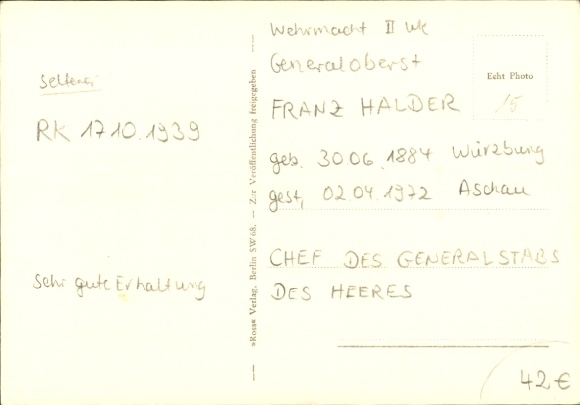 seltener
RK 17.10.1939
Sehr gute Erhaltung
»Ross« Verlag, Berlin SW 68. — Zur Veröffentlichung freigegeben
Wehrmacht II Wk
Generaloberst
FRANZ HALDER
Echt Photo
15
geb. 30.06.1884 Würzburg
gest. 02.04.1972 Aschau
CHEF DES GENERALSTABS
DES HEERES
42 €